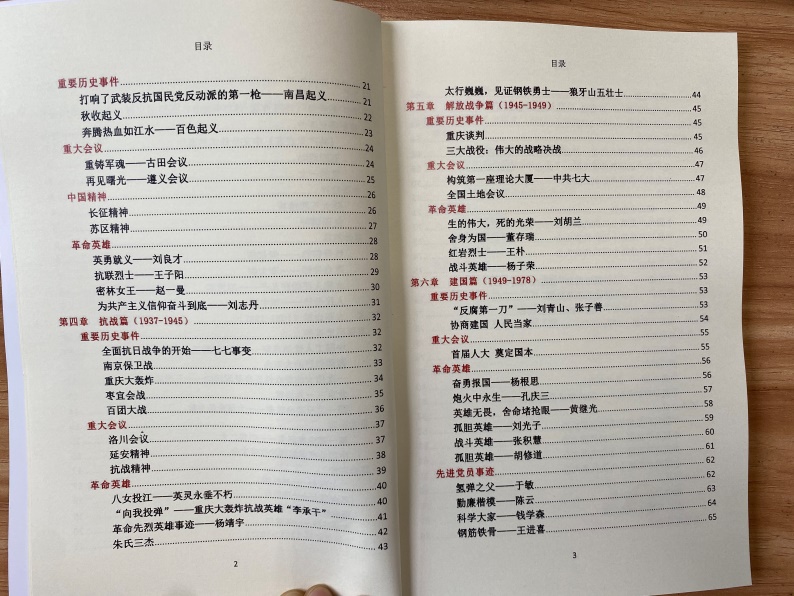 目录
重要历史事件 21
打响了武装反抗国民党反动派的第一枪——南昌起义 21
秋收起义 22
奔腾热血如江水——百色起义 23
重大会议 24
重铸军魂——古田会议 24
再见曙光——遵义会议 25
中国精神 26
长征精神 26
苏区精神 27
革命英雄 28
英勇就义——刘良才 28
抗联烈士——王子阳 29
密林女王——赵一曼 30
为共产主义信仰奋斗到底——刘志丹 31
第四章 抗战篇（1937-1945） 32
重要历史事件 32
全面抗日战争的开始——七七事变 32
南京保卫战 33
重庆大轰炸 34
枣宜会战 35
百团大战 36
重大会议 37
洛川会议 37
延安精神 38
抗战精神 39
革命英雄 40
八女投江——英灵永垂不朽 40
“向我投弹”——重庆大轰炸抗战英雄“李承干” 41
革命先烈英雄事迹——杨靖宇 42
朱氏三杰 43
2
目录
太行巍巍，见证钢铁勇士——狼牙山五壮士 44
第五章 解放战争篇（1945-1949） 45
重要历史事件 45
重庆谈判 45
三大战役：伟大的战略决战 46
重大会议 47
构筑第一座理论大厦——中共七大 47
全国土地会议 48
革命英雄 49
生的伟大，死的光荣——刘胡兰 49
舍身为国——董存瑞 50
红岩烈士——王朴 51
战斗英雄——杨子荣 52
第六章 建国篇（1949-1978） 53
重要历史事件 53
“反腐第一刀”——刘青山、张子善 53
协商建国 人民当家 54
重大会议 55
首届人大 奠定国本 55
革命英雄 56
奋勇报国——杨根思 56
炮火中永生——孔庆三 57
英雄无畏，舍命堵抢眼——黄继光 58
孤胆英雄——刘光子 59
战斗英雄——张积慧 60
孤胆英雄——胡修道 61
先进党员事迹 62
氢弹之父——于敏 62
勤廉楷模——陈云 63
科学大家——钱学森 64
钢筋铁骨——王进喜 65
3